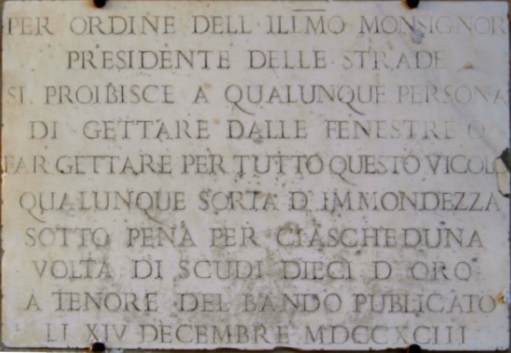 PER ORDINE DELL ILLMO MONSIGNOR
PRESIDENTE DELLE STRADE
SI PROIBISCE A QUALUNQUE PERSONA
DI GETTARE DALLE FENESTRE O
FAR GETTARE PER TUTTO QUESTO VICOLO
QUALUNQUE SORTA D IMMONDEZZA
SOTTO PENA PER CIASCHEDUNA
VOLTA DI SCUDI DIECI D ORO
A TENORE DEL BANDO PUBLICATO
LI XIV DECEMBRE MDCCXCIII